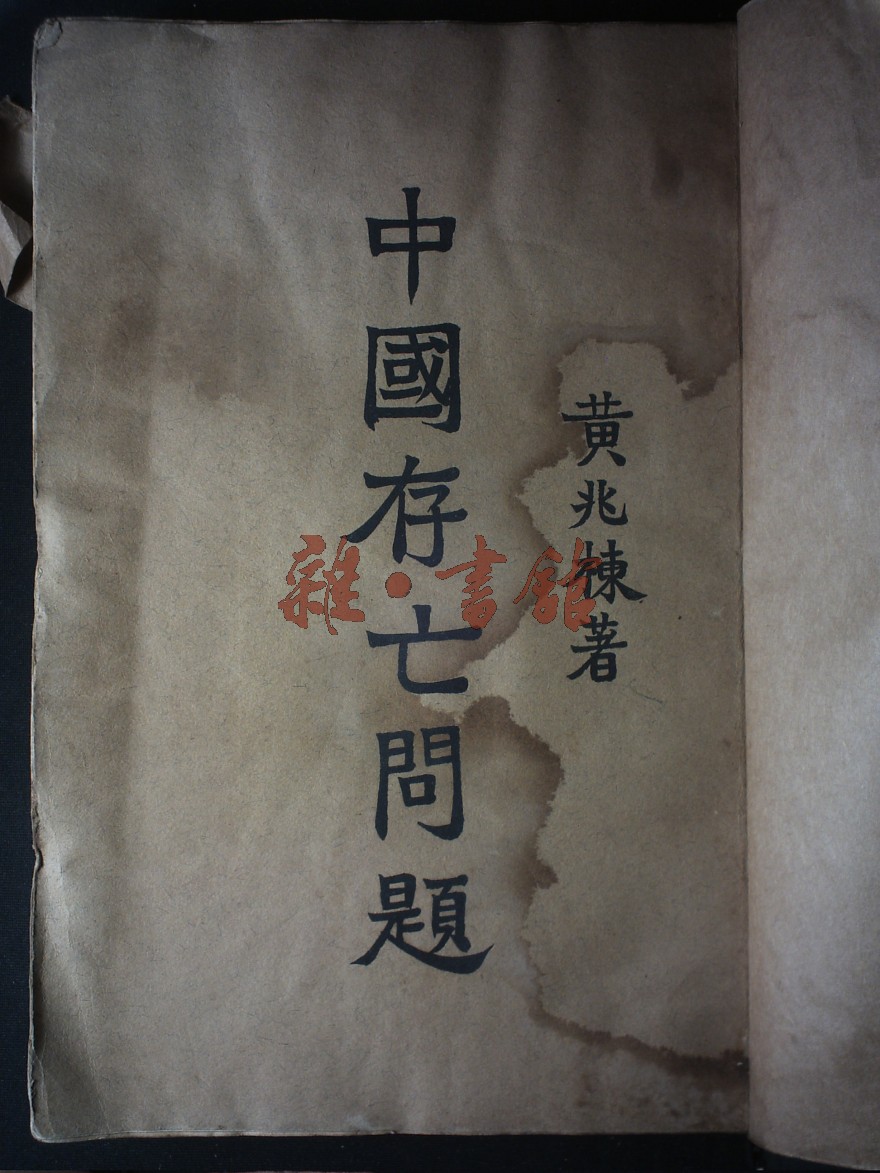 黄兆棟著
中國存亡問題
雜·書館